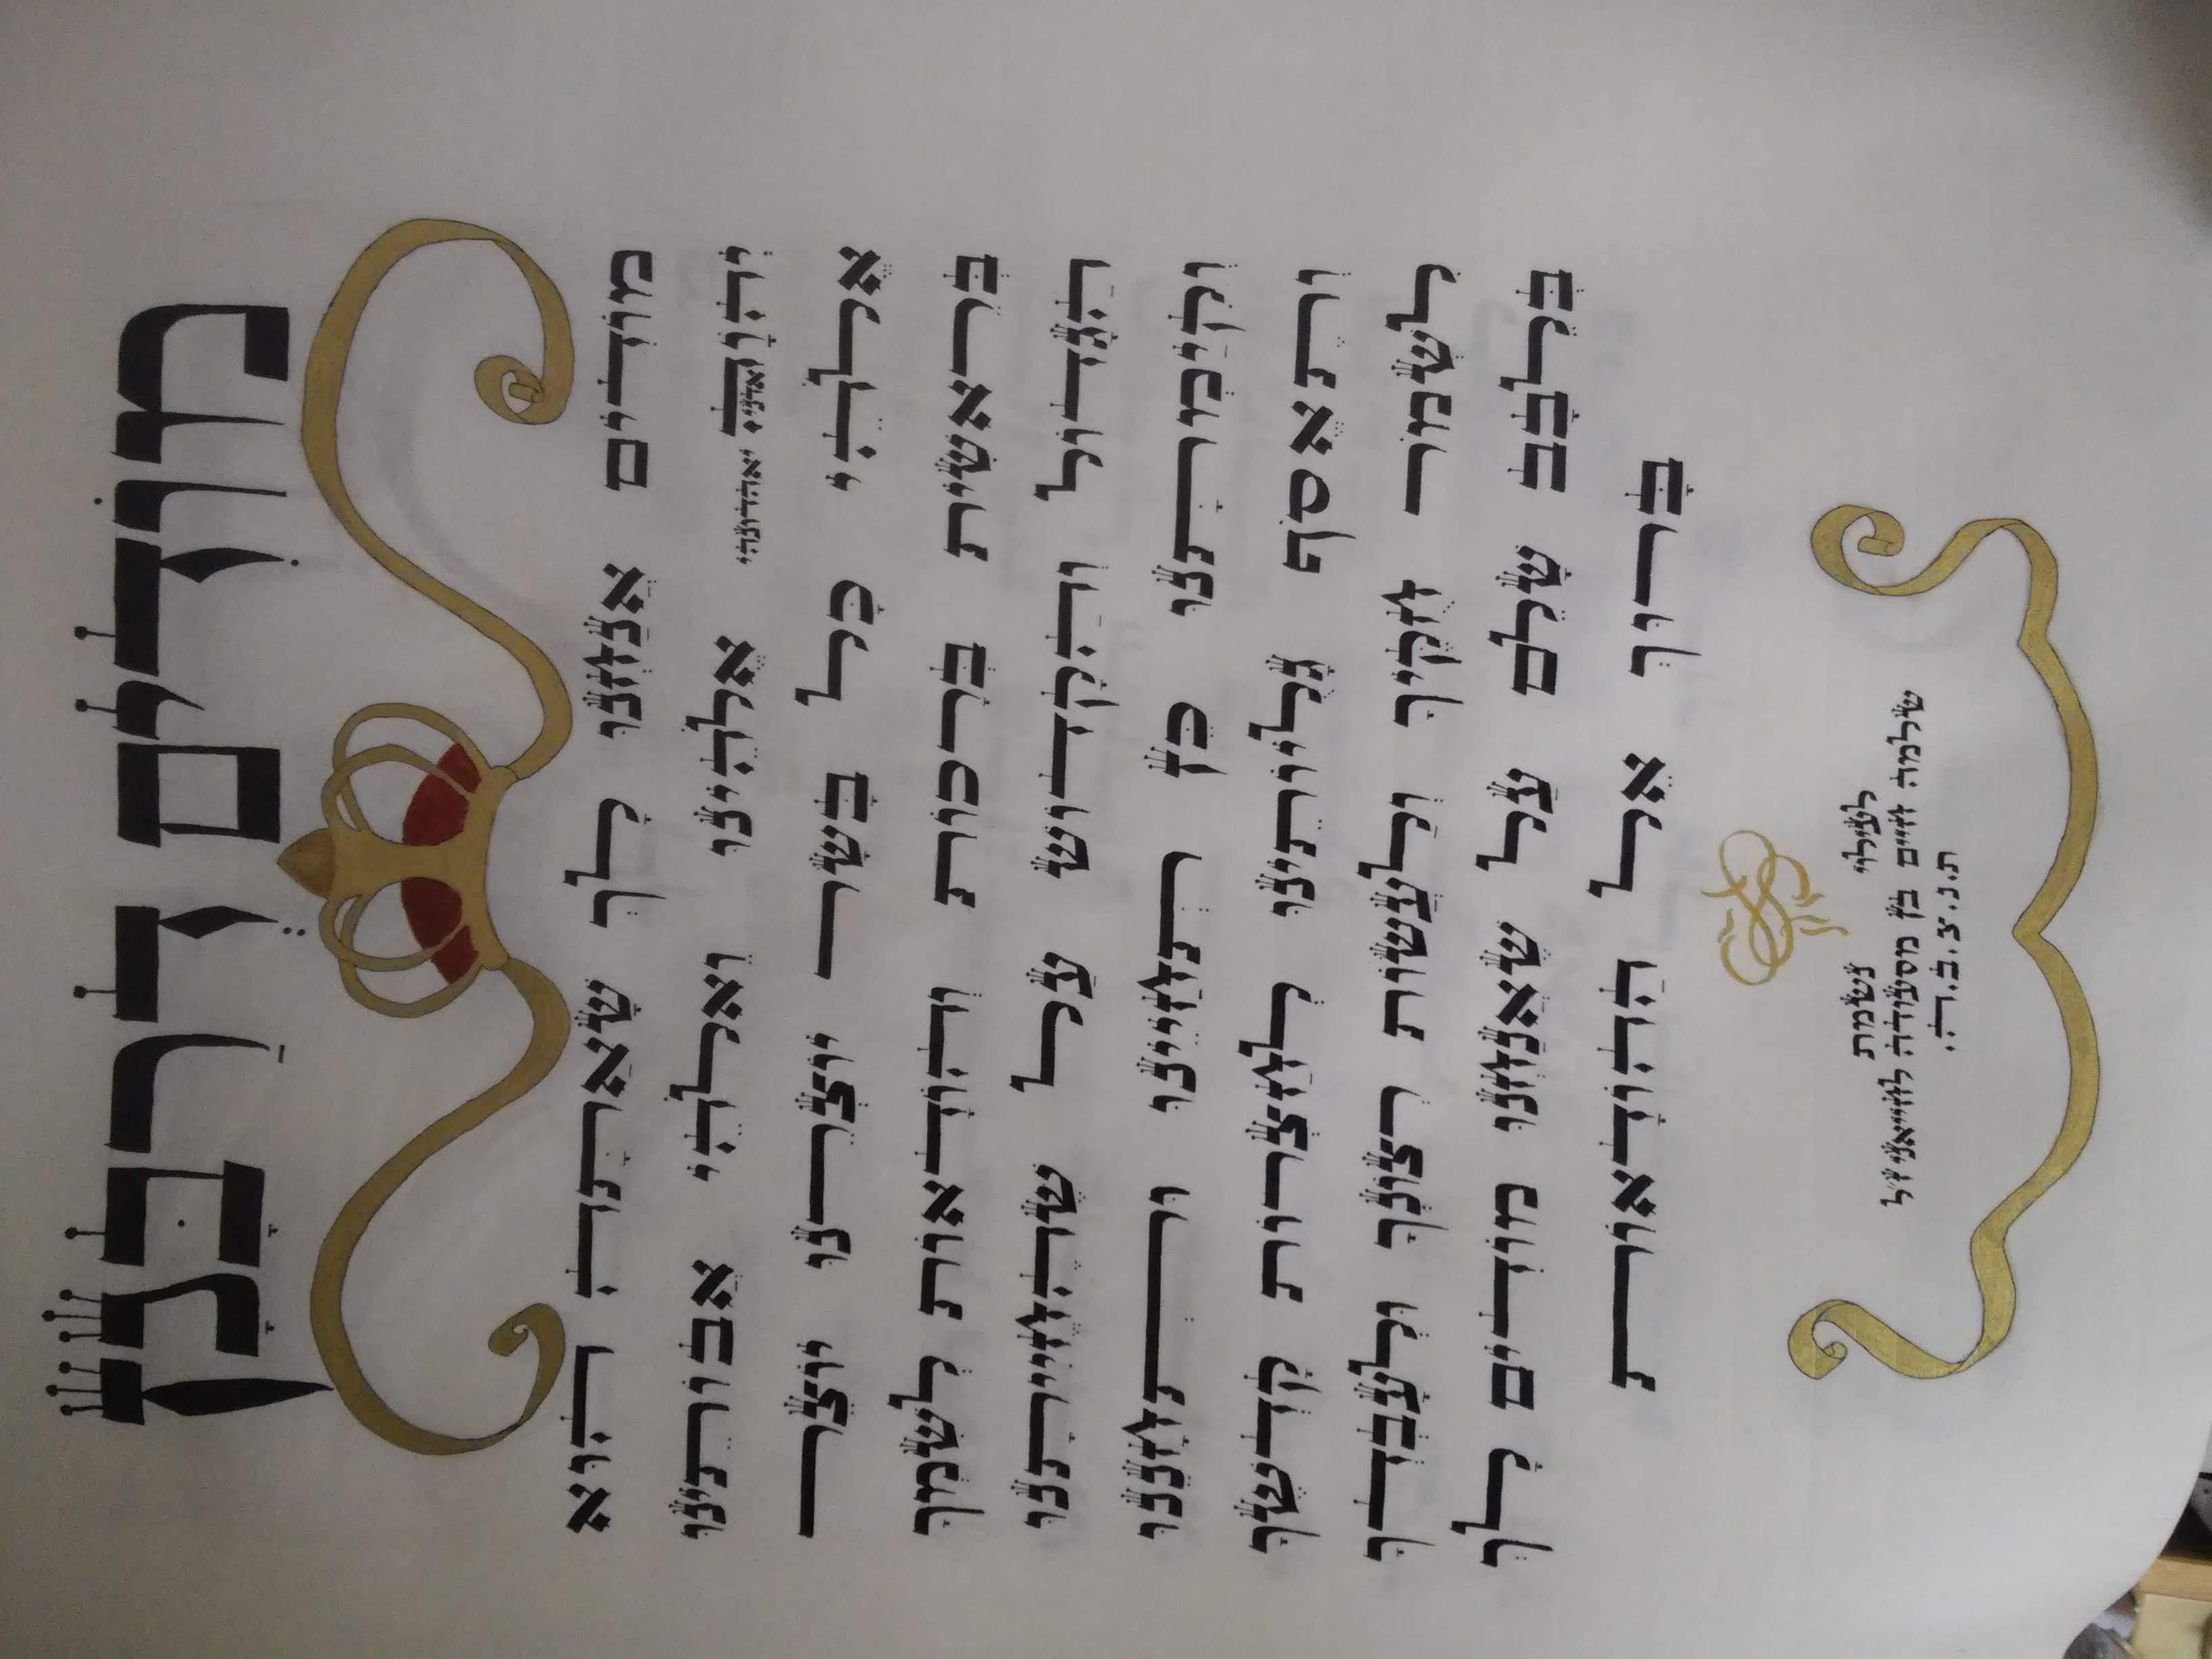 מוֹדִים דְרַבָּנָן
מוֹדִים אֲנַחְנוּ לָךְ שָׁאַתָּה הוּא
יְהֹוָה יאהדונהי אֱלֹהֵינוּ וֵאלֹהֵי אֲבוֹתֵינוּ
אֱלֹהֵי כָּל בָּשָׂר יוֹצְרֵנוּ יוֹצֵר
בְּרֵאשִׁית בְּרָכוֹת וְהוֹדָאוֹת לְשִׁמְךָ
הַגָּדוֹל וְהַקָּדוֹשׁ עַל שֶׁהֶחֱיִיתָנוּ
וְקִיַּמְתָּנוּ כֵּן תְּחַיֵּינוּ וּתְחָנֵּנוּ
וְתֶאֱסֹף גָּלֻיּוֹתֵינוּ לְחַצְרוֹת קָדְשֶׁךָ
לִשְׁמֹר חֻקֶּיךָ וְלַעֲשׂוֹת רְצוֹנְךָ וּלְעָבְדְךָ
בְּלֵבָב שָׁלֵם עַל שֶׁאֲנַחְנוּ מוֹדִים לָךְ
בָּרוּךְ אֵל הַהוֹדָאוֹת
לעילוי נשמת
שלמה חיים בן מסעודה לחייאני ז"ל
ת.נ.צ.ב.ה.